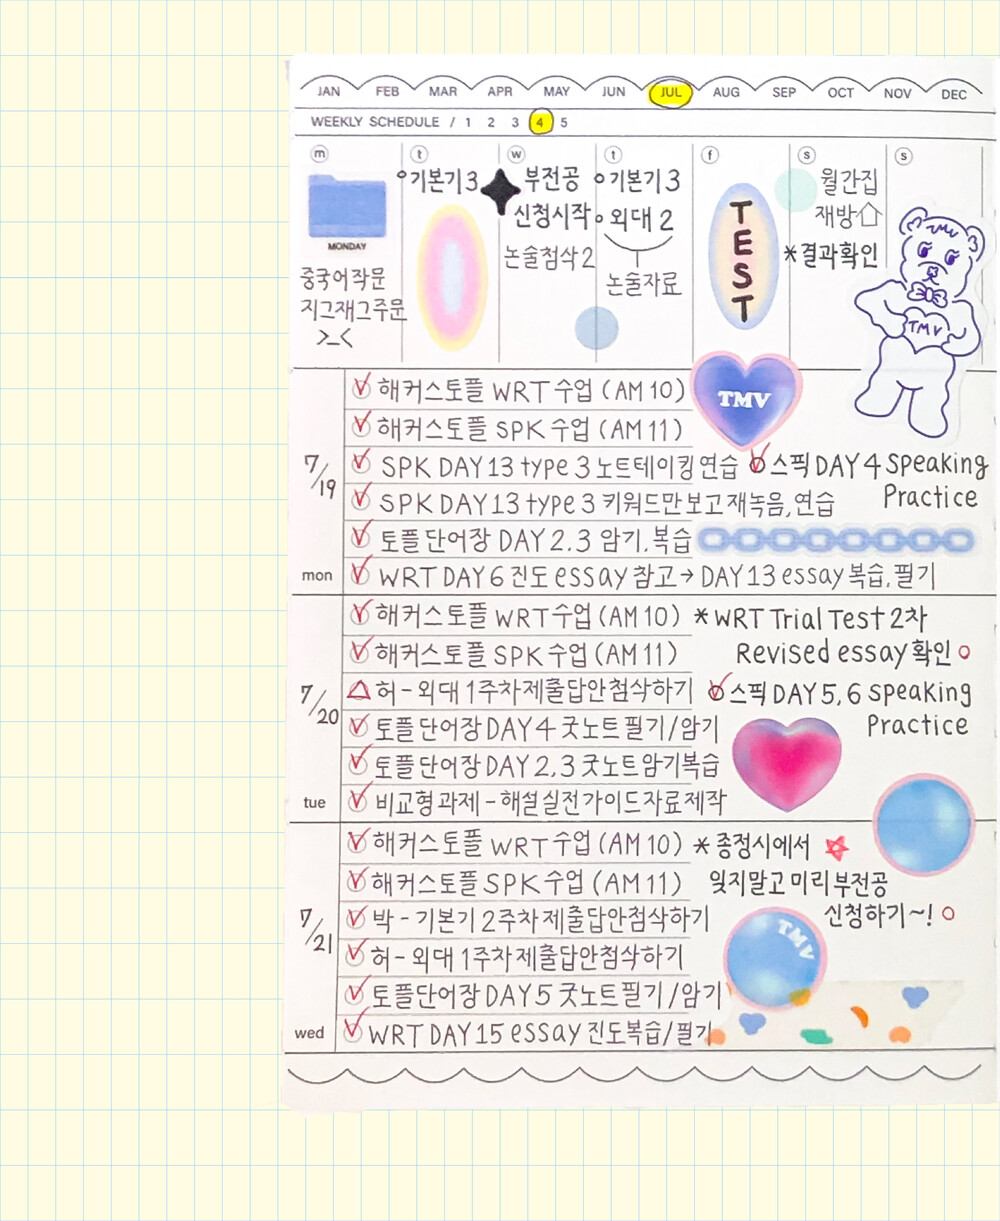 JAN FEB MAR APR MAY JUN JUL AUG SEP OCT NOV DEC
WEEKLY SCHEDULE / 1 2 3 4 5
m t w t f s s
MONDAY
중국어작문
지그재그주문
>_<
기본기3
부전공
신청시작
논술첨삭2
기본기3
외대 2
논술자료
TEST
월간집
재방
*결과확인
TMV
TMV
TMV
7/19
mon
해커스토플 WRT 수업 (AM 10)
해커스토플 SPK 수업 (AM 11)
SPK DAY 13 type 3 노트테이킹 연습
스픽 DAY 4 speaking
Practice
SPK DAY 13 type 3 키워드만보고재녹음, 연습
토플단어장 DAY 2.3 암기, 복습
WRT DAY 6 진도 essay 참고→DAY 13 essay 복습, 필기
7/20
tue
해커스토플 WRT수업 (AM 10)
*WRT Trial Test 2차
Revised essay 확인 o
해커스토플 SPK수업 (AM 11)
허-외대 1주차제출답안첨삭하기
스픽 DAY 5, 6 speaking
Practice
토플단어장 DAY 4 굿노트 필기/암기
토플단어장 DAY 2,3 굿노트암기복습
비교형과제-해설실전가이드자료제작
7/21
wed
해커스토플 WRT수업 (AM 10)
*종정시에서
잊지말고미리부전공
신청하기~! o
해커스토플 SPK수업 (AM 11)
박-기본기 2주차제출답안첨삭하기
허-외대 1주차제출답안첨삭하기
토플단어장 DAY 5 굿노트필기/암기
WRT DAY 15 essay 진도복습/필기
TMV